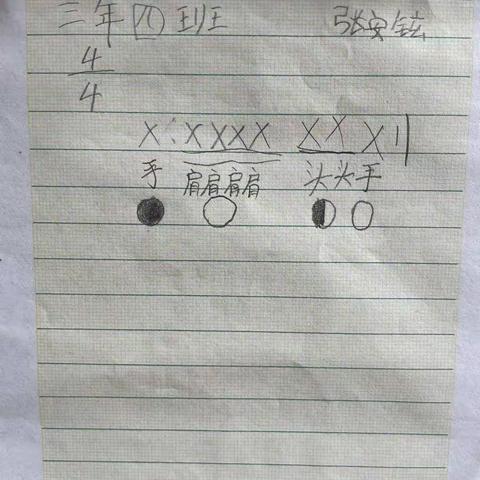 三年四班 张安铉
4
4
X XXXX XX X ‖
手 肩肩肩肩 头头手